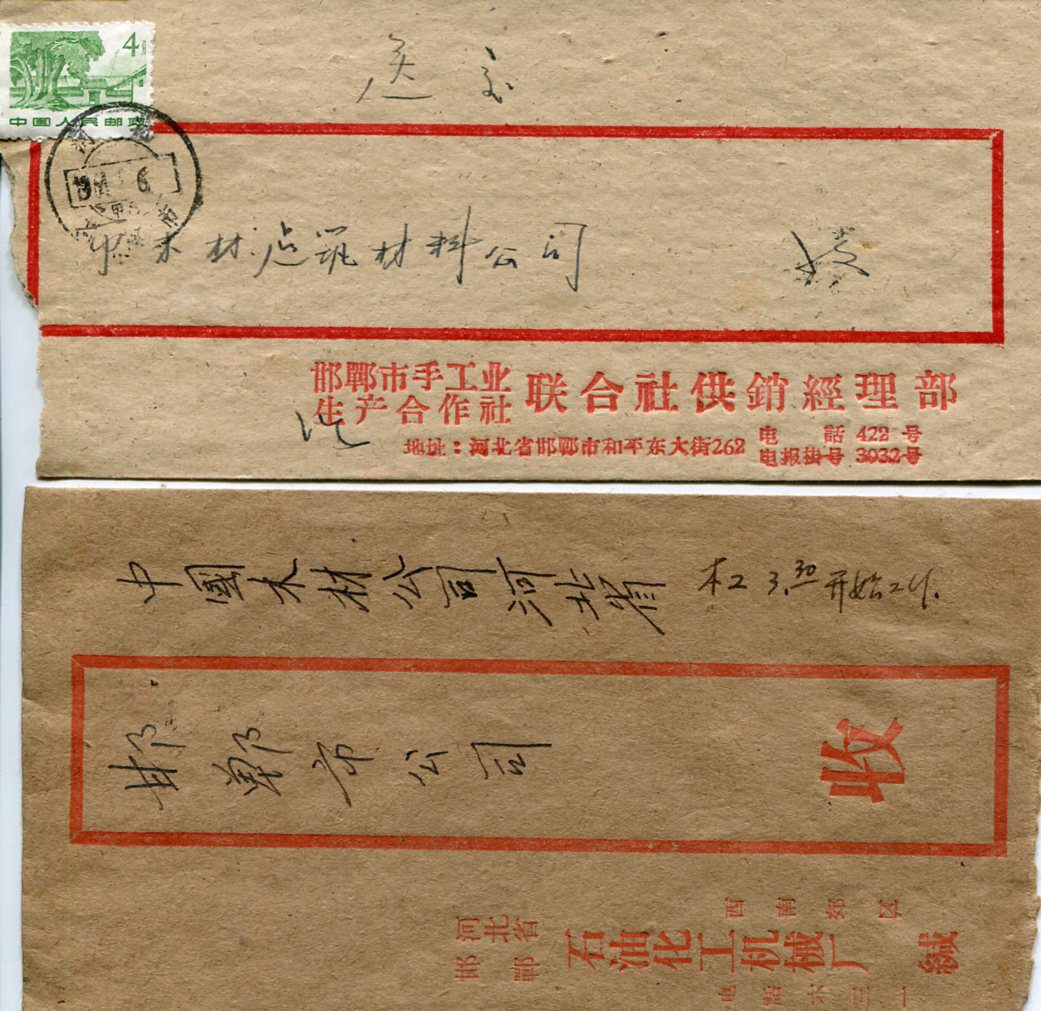 4
中国人民邮政
送交
市木材.建筑材料公司 收
邯鄲市手工业
生产合作社
联合社供銷經理部
地址：河北省邯鄲市和平东大街262
电 話 422 号
电报掛号 3032号
中國木材公司河北省
木工 3.30 开始工作.
邯鄲市公司
收
西南郊区
河北省
邯鄲
石油化工机械厂 緘
电話六三一